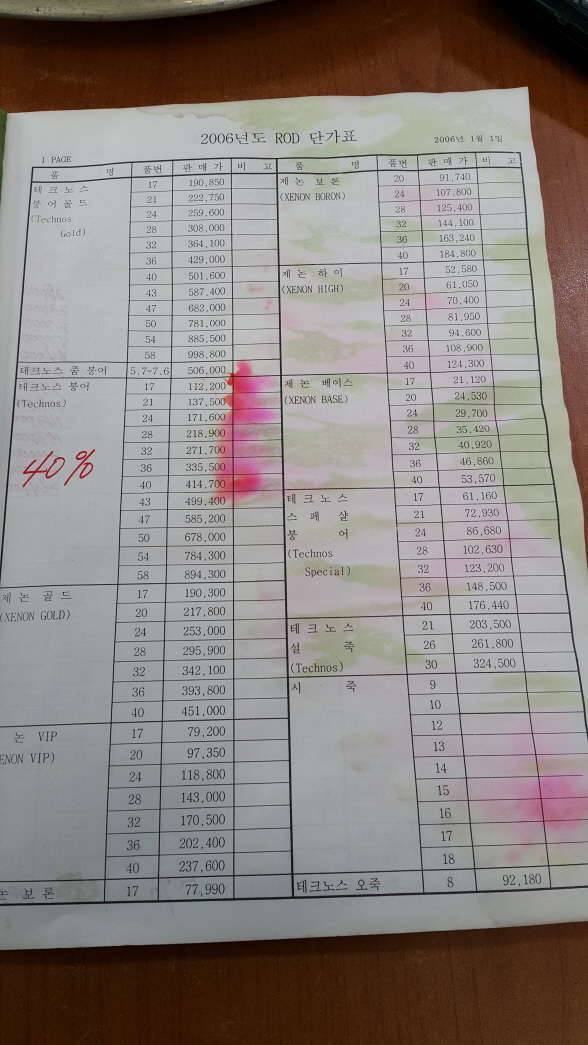 2006년도 ROD 단가표
1 PAGE
2006년 1월 1일
품 명 품번 판 매 가 비 고
테 크 노 스 17 190,850
붕 어 골 드 21 222,750
(Technos 24 259,600
Gold) 28 308,000
32 364,100
36 429,000
40 501,600
43 587,400
47 682,000
50 781,000
54 885,500
58 998,800
테크노스 줌 붕어 5.7-7.6 506,000
테크노스 붕어 17 112,200
(Technos) 21 137,500
24 171,600
28 218,900
32 271,700
40%
36 335,500
40 414,700
43 499,400
47 585,200
50 678,000
54 784,300
58 894,300
제 논 골 드 17 190,300
(XENON GOLD) 20 217,800
24 253,000
28 295,900
32 342,100
36 393,800
40 451,000
논 VIP 17 79,200
ENON VIP) 20 97,350
24 118,800
28 143,000
32 170,500
36 202,400
40 237,600
논 보 론 17 77,990
품 명 품번 판 매 가 비 고
제 논 보 론 20 91,740
(XENON BORON) 24 107,800
28 125,400
32 144,100
36 163,240
40 184,800
제 논 하 이 17 52,580
(XENON HIGH) 20 61,050
24 70,400
28 81,950
32 94,600
36 108,900
40 124,300
제 논 베이스 17 21,120
(XENON BASE) 20 24,530
24 29,700
28 35,420
32 40,920
36 46,860
40 53,570
테 크 노 스 17 61,160
스 페 샬 21 72,930
붕 어 24 86,680
(Technos 28 102,630
Special) 32 123,200
36 148,500
40 176,440
테 크 노 스 21 203,500
설 죽 26 261,800
(Technos) 30 324,500
시 죽 9
10
12
13
14
15
16
17
18
테크노스 오죽 8 92,180